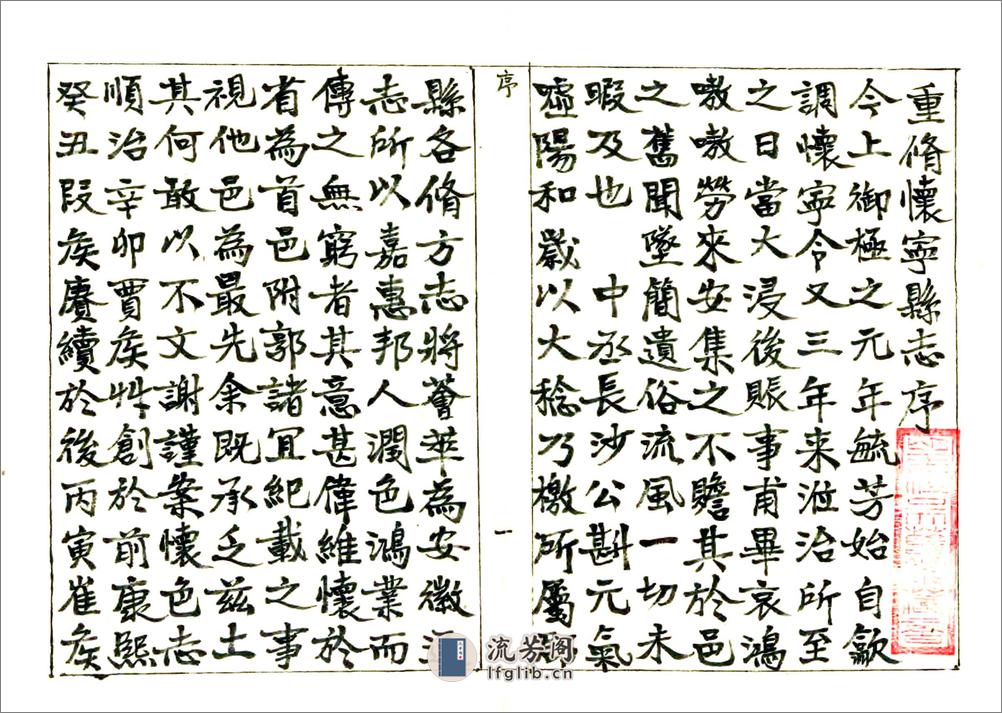 重脩懷寧縣志序
今上御極之元年毓芳始自歙
調懷寧令又三年来涖治所至
之日當大浸後賑事甫畢哀鴻
嗷嗷勞來安集之不贍其於邑
之舊聞墜簡遺俗流風一切未
暇及也 中丞長沙公斟元氣
噓陽和歲以大稔乃檄所屬
序
一
縣各脩方志將薈萃為安徽
志所以嘉惠邦人潤色鴻業而
傳之無窮者其意甚偉維懷於
省為首邑附郭諸冝紀載之事
視他邑為最先余既承乏茲土
其何敢以不文謝謹案懷邑志
順治辛卯賈矦艸創於前康熙
癸丑段矦賡續於後丙寅崔矦
流芳阁
lfglib.cn